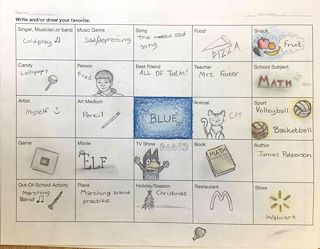 Write and/or draw your favorite:
Singer, Musician, or band
Coldplay
Music Genre
Sad/depressing
Song
The moous sad
song
Food
PIZZA
Snack
Fruit
Candy
Lollipops
Person
Fred
Book
ALL OF THEM!
Teacher
Mrs. Foster
School Subject
MATH
Artist
Myself
Art Medium
Pencil
BLUE
Animal
CAT
Sport
Volleyball
Basketball
Game
Movie
ELF
TV Show
Book
MATH
Author
James Patterson
Out-Of-School Activity
Marching
Band
Place
Marching band
practice
Holiday/Season
Christmas
Restaurant
Store
Walmart